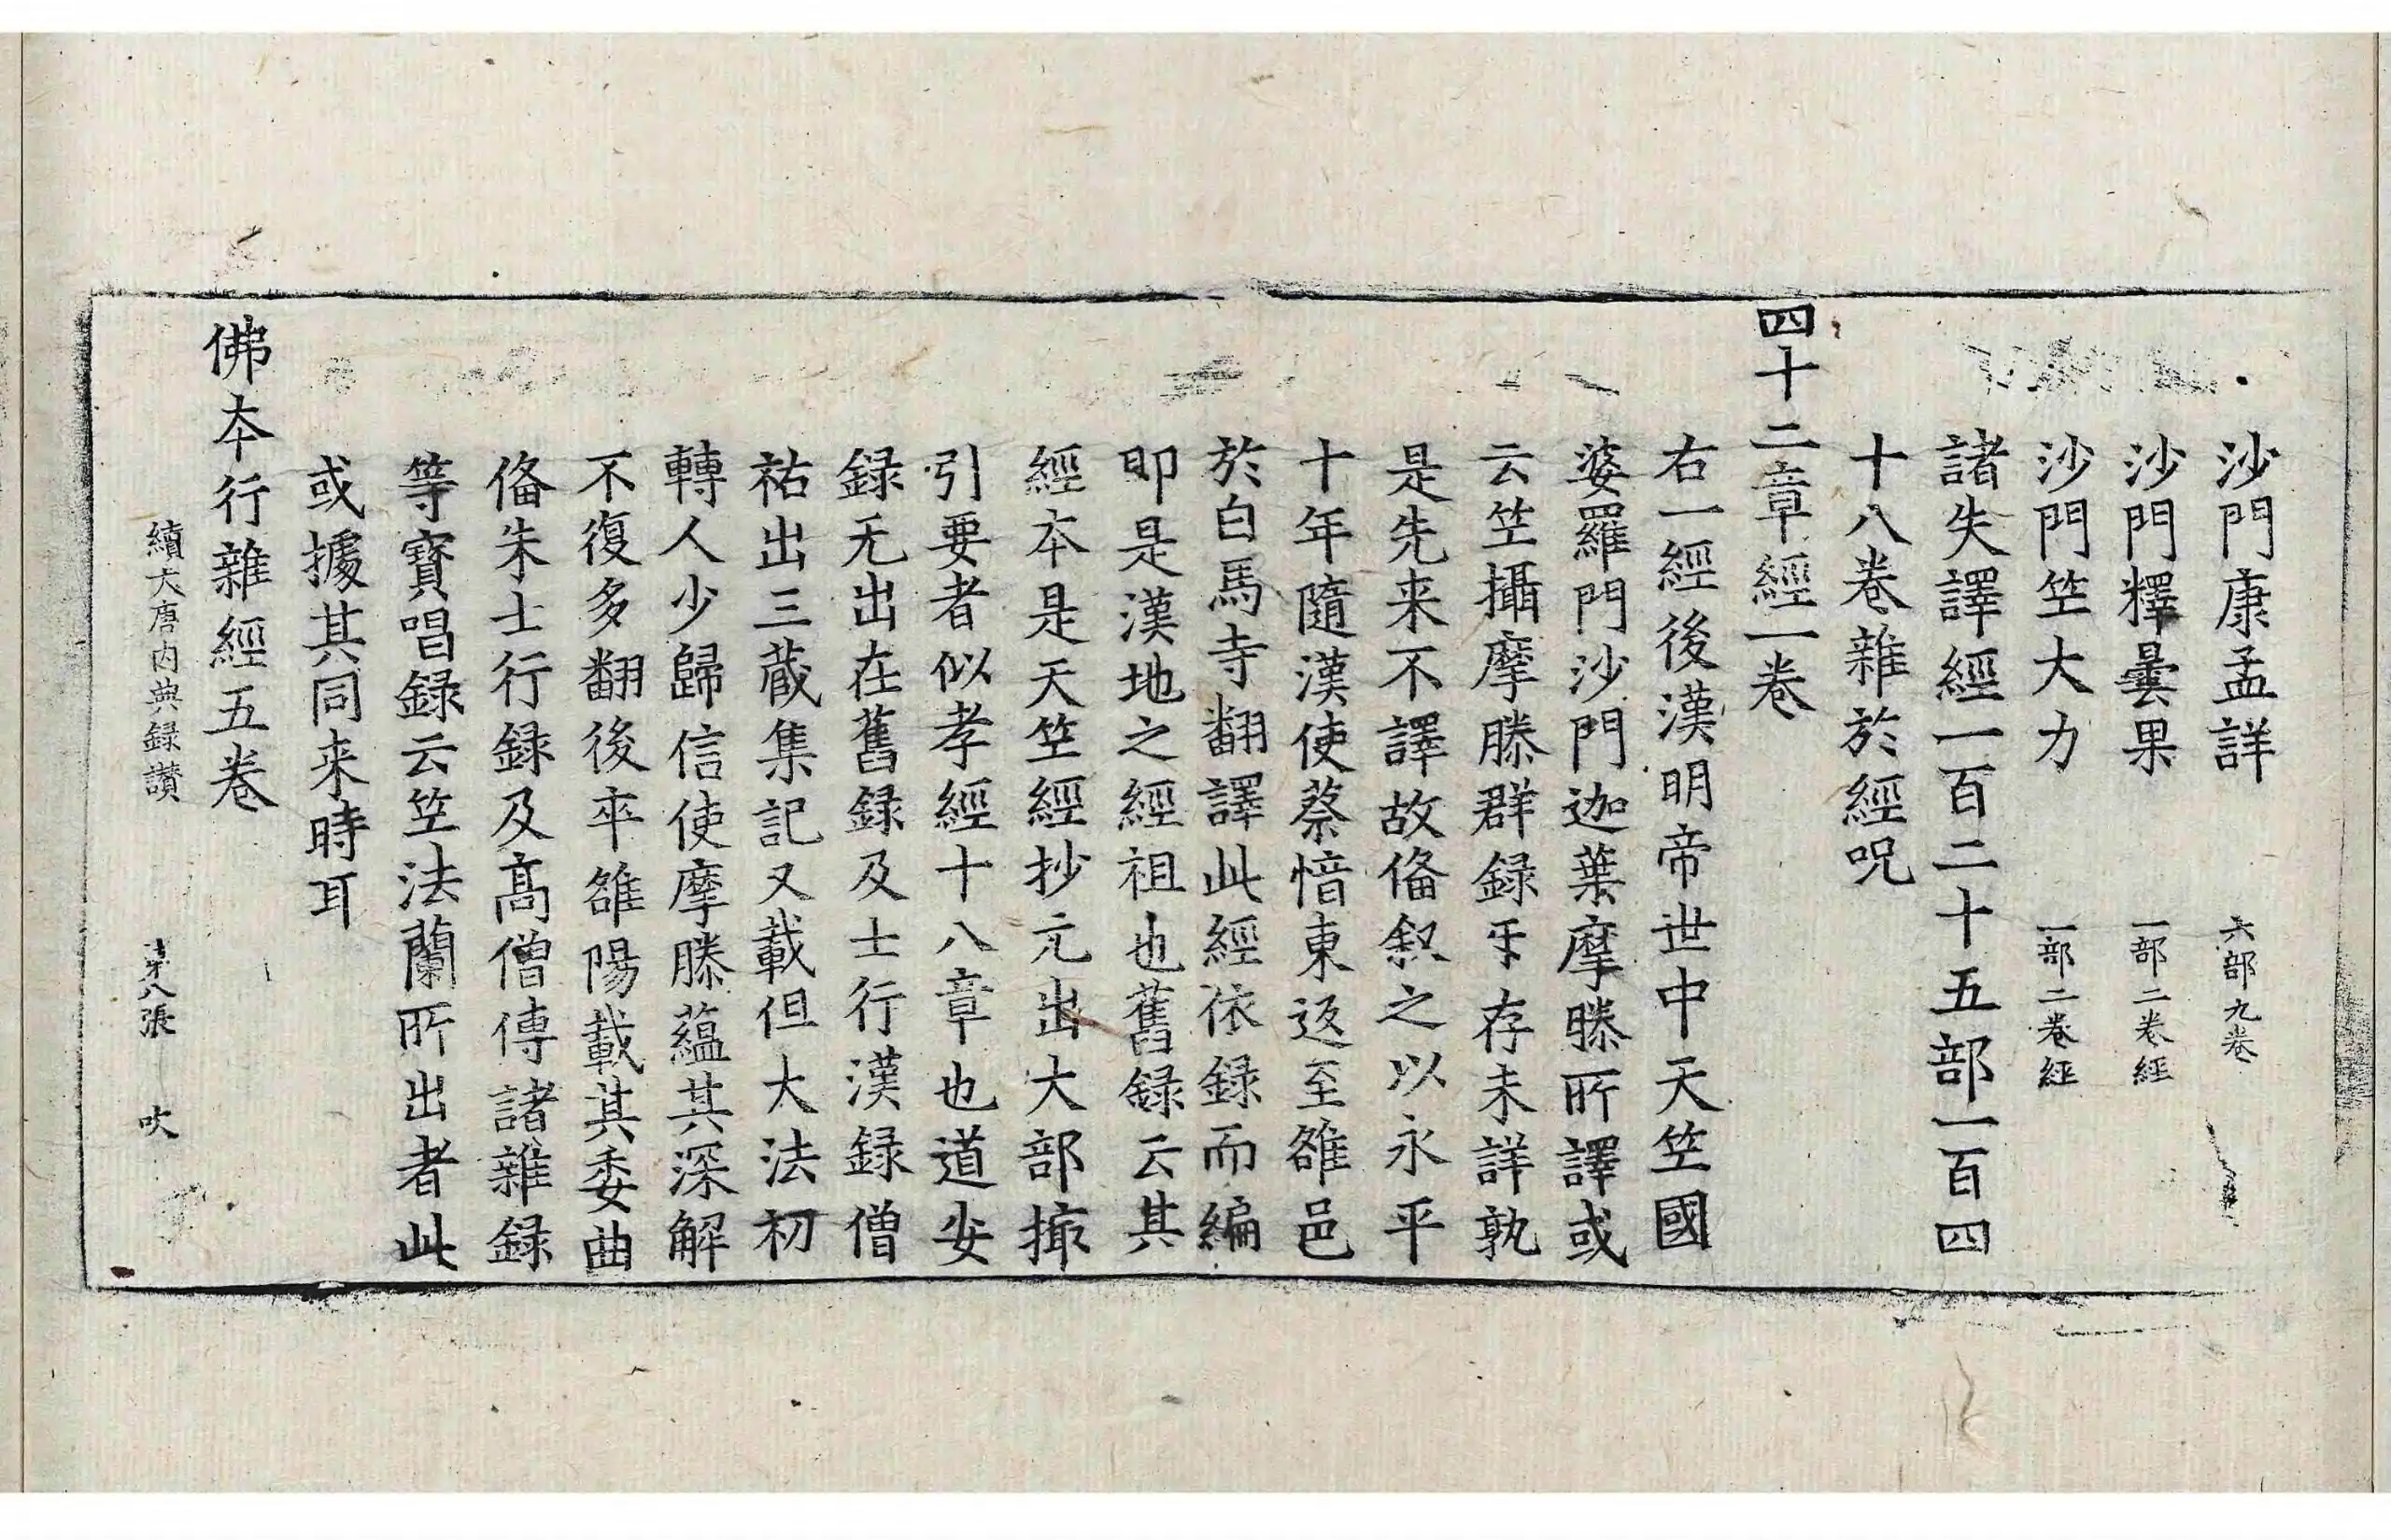 沙門康孟詳　六部九卷
沙門釋曇果　一部二卷經
沙門竺大力　一部二卷經
諸失譯經一百二十五部一百四
十八卷雜於經呪
四十二章經一卷
右一經後漢明帝世中天竺國
婆羅門沙門迦葉摩騰所譯或
云竺攝摩滕群録互存未詳孰
是先来不譯故俻叙之以永平
十年隨漢使蔡愔東返至雒邑
於白馬寺翻譯此經依録而編
即是漢地之經祖也舊録云其
經本是天竺經抄元出大部撮
引要者似孝經十八章也道安
録无出在舊録及士行漢録僧
祐出三藏集記又載但大法初
轉人少歸信使摩滕蘊其深解
不復多翻後卒雒陽載其委曲
俻朱士行録及髙僧傳諸雜録
等寶唱録云竺法蘭所出者此
或據其同来時耳
佛本行雜經五卷
續大唐内典録讃　第八張　吹